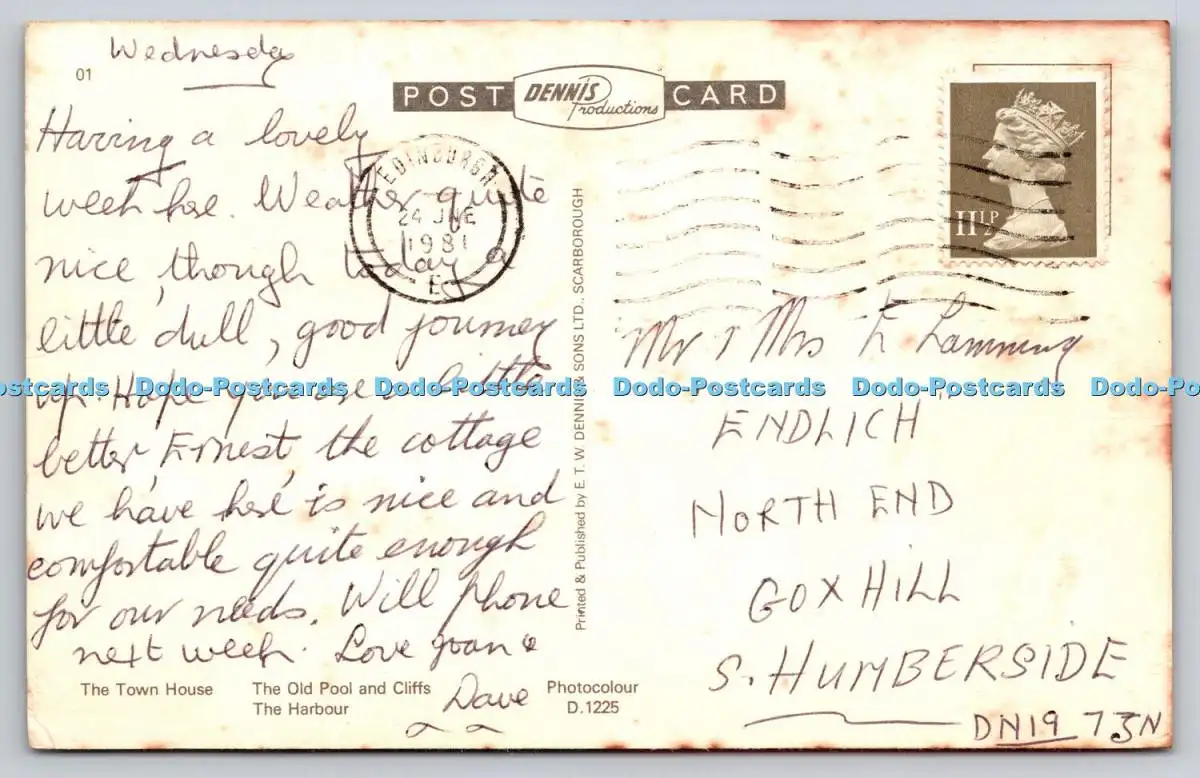 01
Wednesday
POST DENNIS Productions CARD
Having a lovely
week here. Weather quite
nice, though today a
little dull, good journey
up. Hope you are a little
better, Ernest, the cottage
we have here is nice and
comfortable quite enough
for our needs. Will phone
next week. Love Joan &
Dave
EDINBURGH
24 JNE
1981
E
11½P
Mr & Mrs E Lamming
ENDLICH"
NORTH END
GOXHILL
S. HUMBERSIDE
DN19 7JN
Printed & Published by E. T. W. DENNIS & SONS LTD., SCARBOROUGH
The Town House The Old Pool and Cliffs
The Harbour
Photocolour
D.1225
Dodo-Postcards Dodo-Postcards Dodo-Postcards Dodo-Postcards Dodo-Postcards